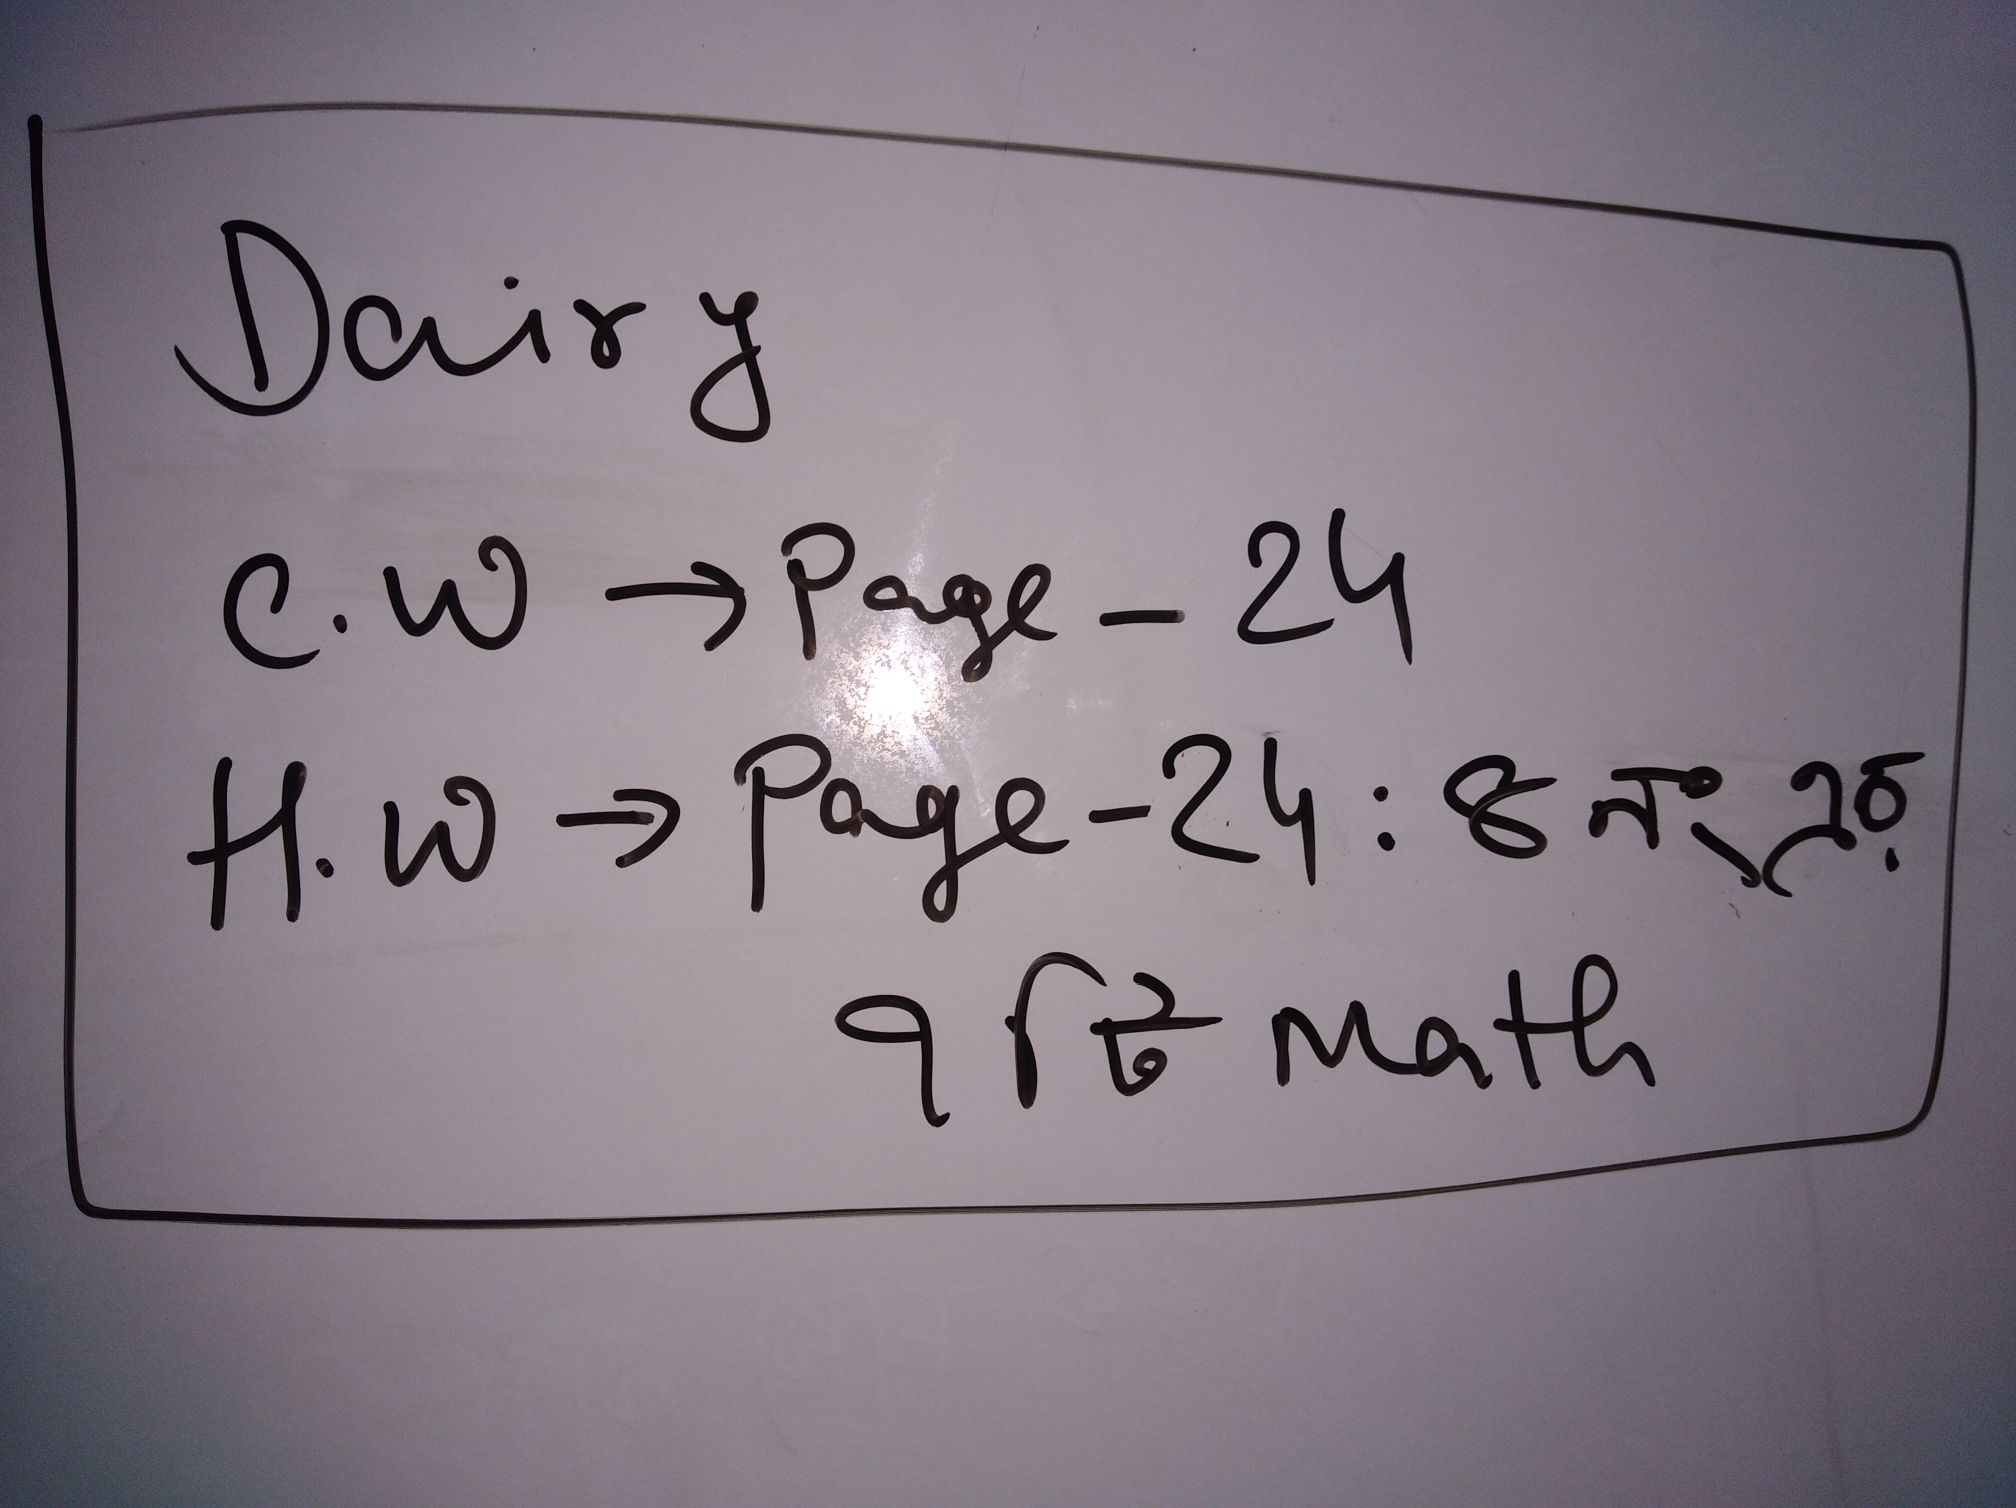 Dairy
C.W → Page - 24
H.W → Page - 24 : ৪ নং এর
৭টি Math